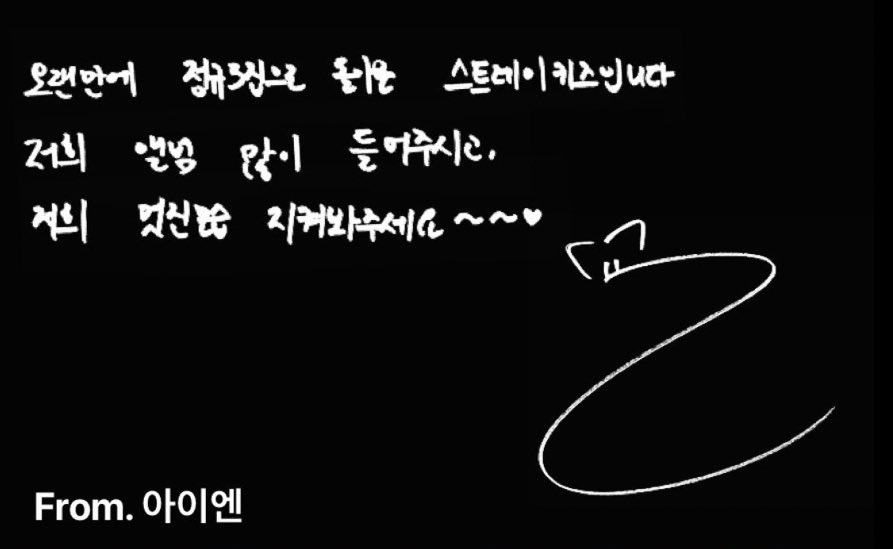 오랜만에 정규3집으로 돌아온 스트레이키즈입니다
저희 앨범 많이 들어주시고,
저희 멋진 지켜봐주세요~~♥
From. 아이엔